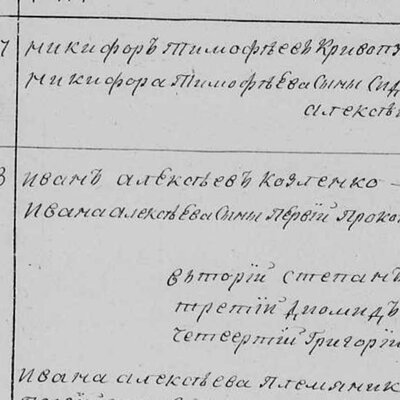 7 Никифоръ Тимофѣевъ Кривоп
Никифора Тимофѣева Сыны Сид
алексѣ
8 Иванъ алексѣевъ Козленко —
Ивана алексѣева Сыны Первій Проко
вторій Степанъ
третій Диомидъ
Четвертій Григорій
Ивана алексѣева Племяник